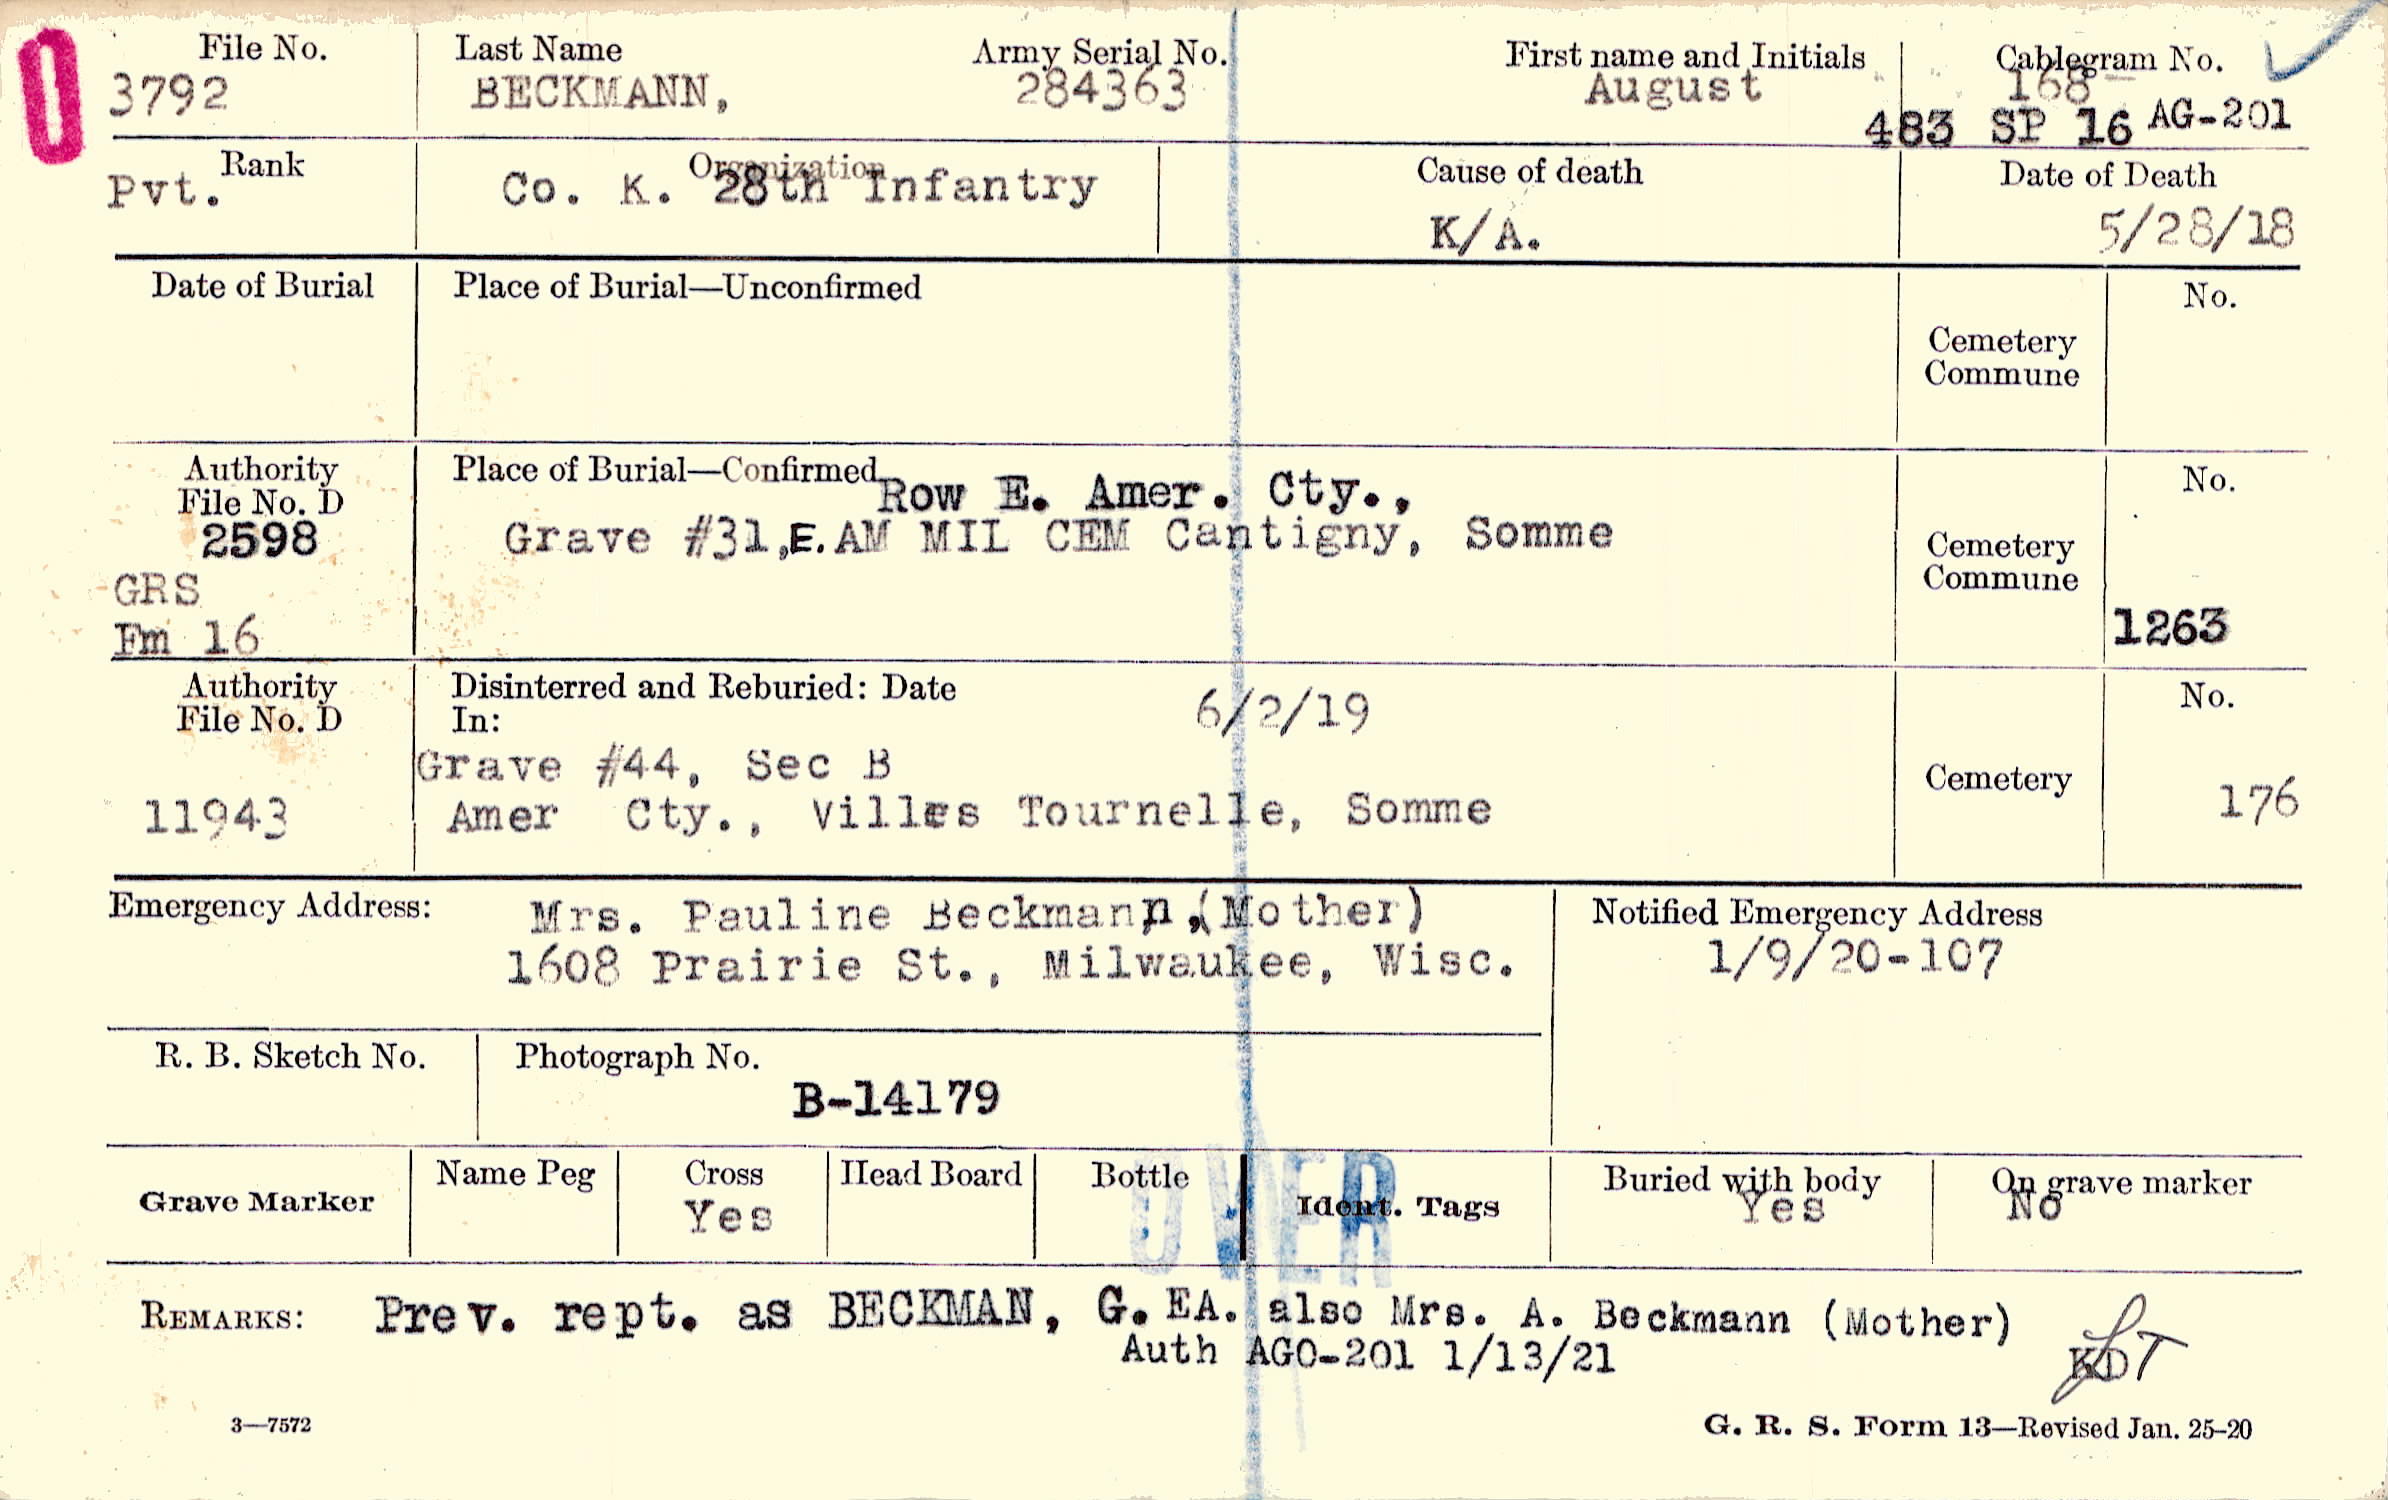 0
File No. Last Name Army Serial No. First name and Initials Cablegram No.
3792 BECKMANN, 284363 August 168
483 SP 16 AG-201
Rank Organization Cause of death Date of Death
Pvt. Co. K. 28th Infantry K/A. 5/28/18
Date of Burial Place of Burial—Unconfirmed No.
Cemetery
Commune
Authority Place of Burial—Confirmed No.
File No. D Row E. Amer. Cty.,
2598 Grave #31,E.AM MIL CEM Cantigny, Somme Cemetery
GRS Commune
Fm 16 1263
Authority Disinterred and Reburied: Date 6/2/19 No.
File No. D In:
Grave #44, Sec B Cemetery
11943 Amer Cty., Villes Tournelle, Somme 176
Emergency Address: Mrs. Pauline Beckmann,(Mother) Notified Emergency Address
1608 Prairie St., Milwaukee, Wisc. 1/9/20-107
R. B. Sketch No. Photograph No.
B-14179
Grave Marker Name Peg Cross Head Board Bottle Ident. Tags Buried with body On grave marker
Yes Yes No
OVER
REMARKS: Prev. rept. as BECKMAN, G. EA. also Mrs. A. Beckmann (Mother)
Auth AGO-201 1/13/21 KD
3—7572 G. R. S. Form 13—Revised Jan. 25-20